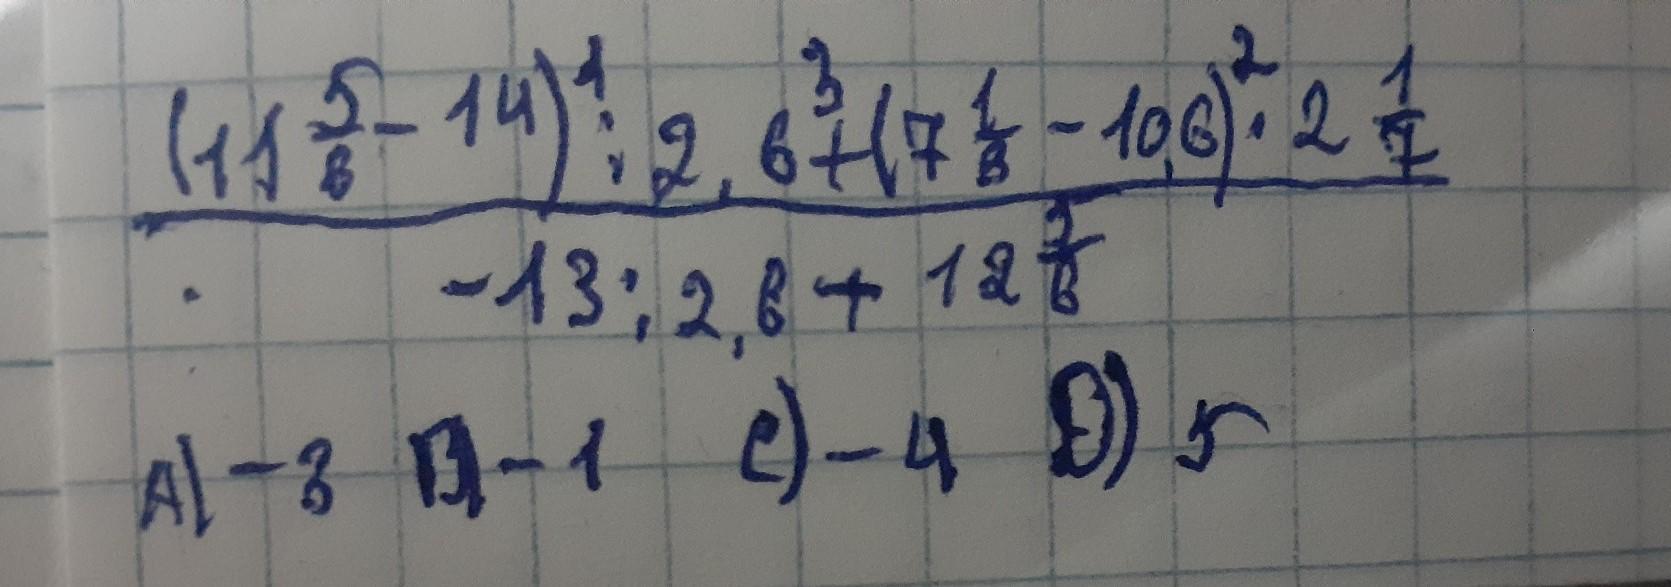 (11 5/6 - 14)¹ : 2,6³ + (7 1/6 - 10,6)² · 2 1/7
-13 : 2,6 + 12 3/6
A) -3 B) -1 C) -4 D) 5